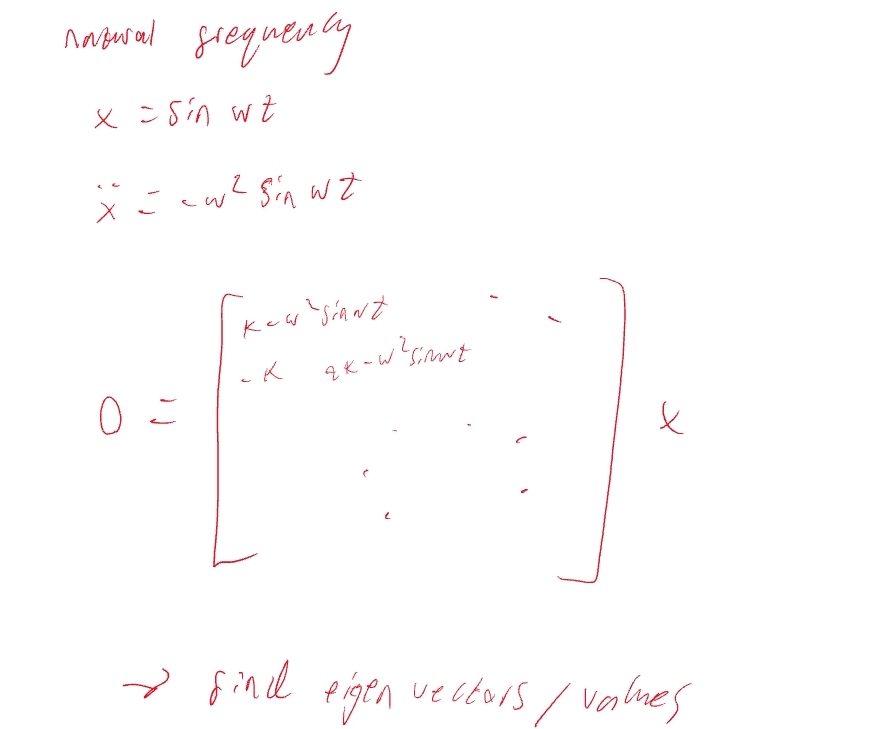 natural frequency
x = sin wt
ẍ = -w² sin wt
k - w² sin wt
-k 2k - w² sin wt
0 = x
→ find eigen vectors / values